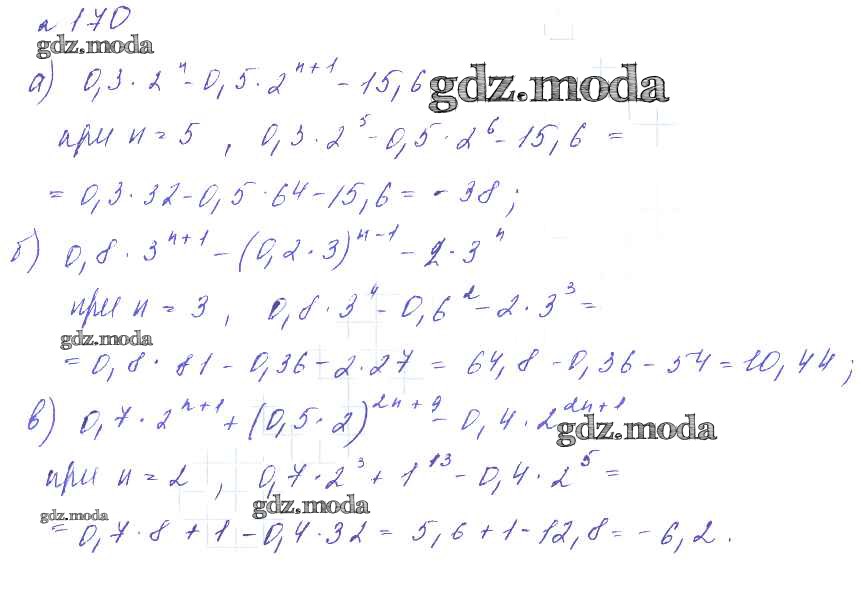 № 170
gdz.moda
а) 0,3 · 2^n - 0,5 · 2^{n+1} - 15,6
gdz.moda
при n = 5 , 0,3 · 2^5 - 0,5 · 2^6 - 15,6 =
= 0,3 · 32 - 0,5 · 64 - 15,6 = - 38 ;
б) 0,8 · 3^{n+1} - (0,2 · 3)^{n-1} - 2 · 3^n
при n = 3 , 0,8 · 3^4 - 0,6^2 - 2 · 3^3 =
gdz.moda
= 0,8 · 81 - 0,36 - 2 · 27 = 64,8 - 0,36 - 54 = 10,44 ;
в) 0,7 · 2^{n+1} + (0,5 · 2)^{2n+9} - 0,4 · 2^{2n+1}
gdz.moda
при n = 2 , 0,7 · 2^3 + 1^{13} - 0,4 · 2^5 =
gdz.moda
gdz.moda
= 0,7 · 8 + 1 - 0,4 · 32 = 5,6 + 1 - 12,8 = - 6,2 .